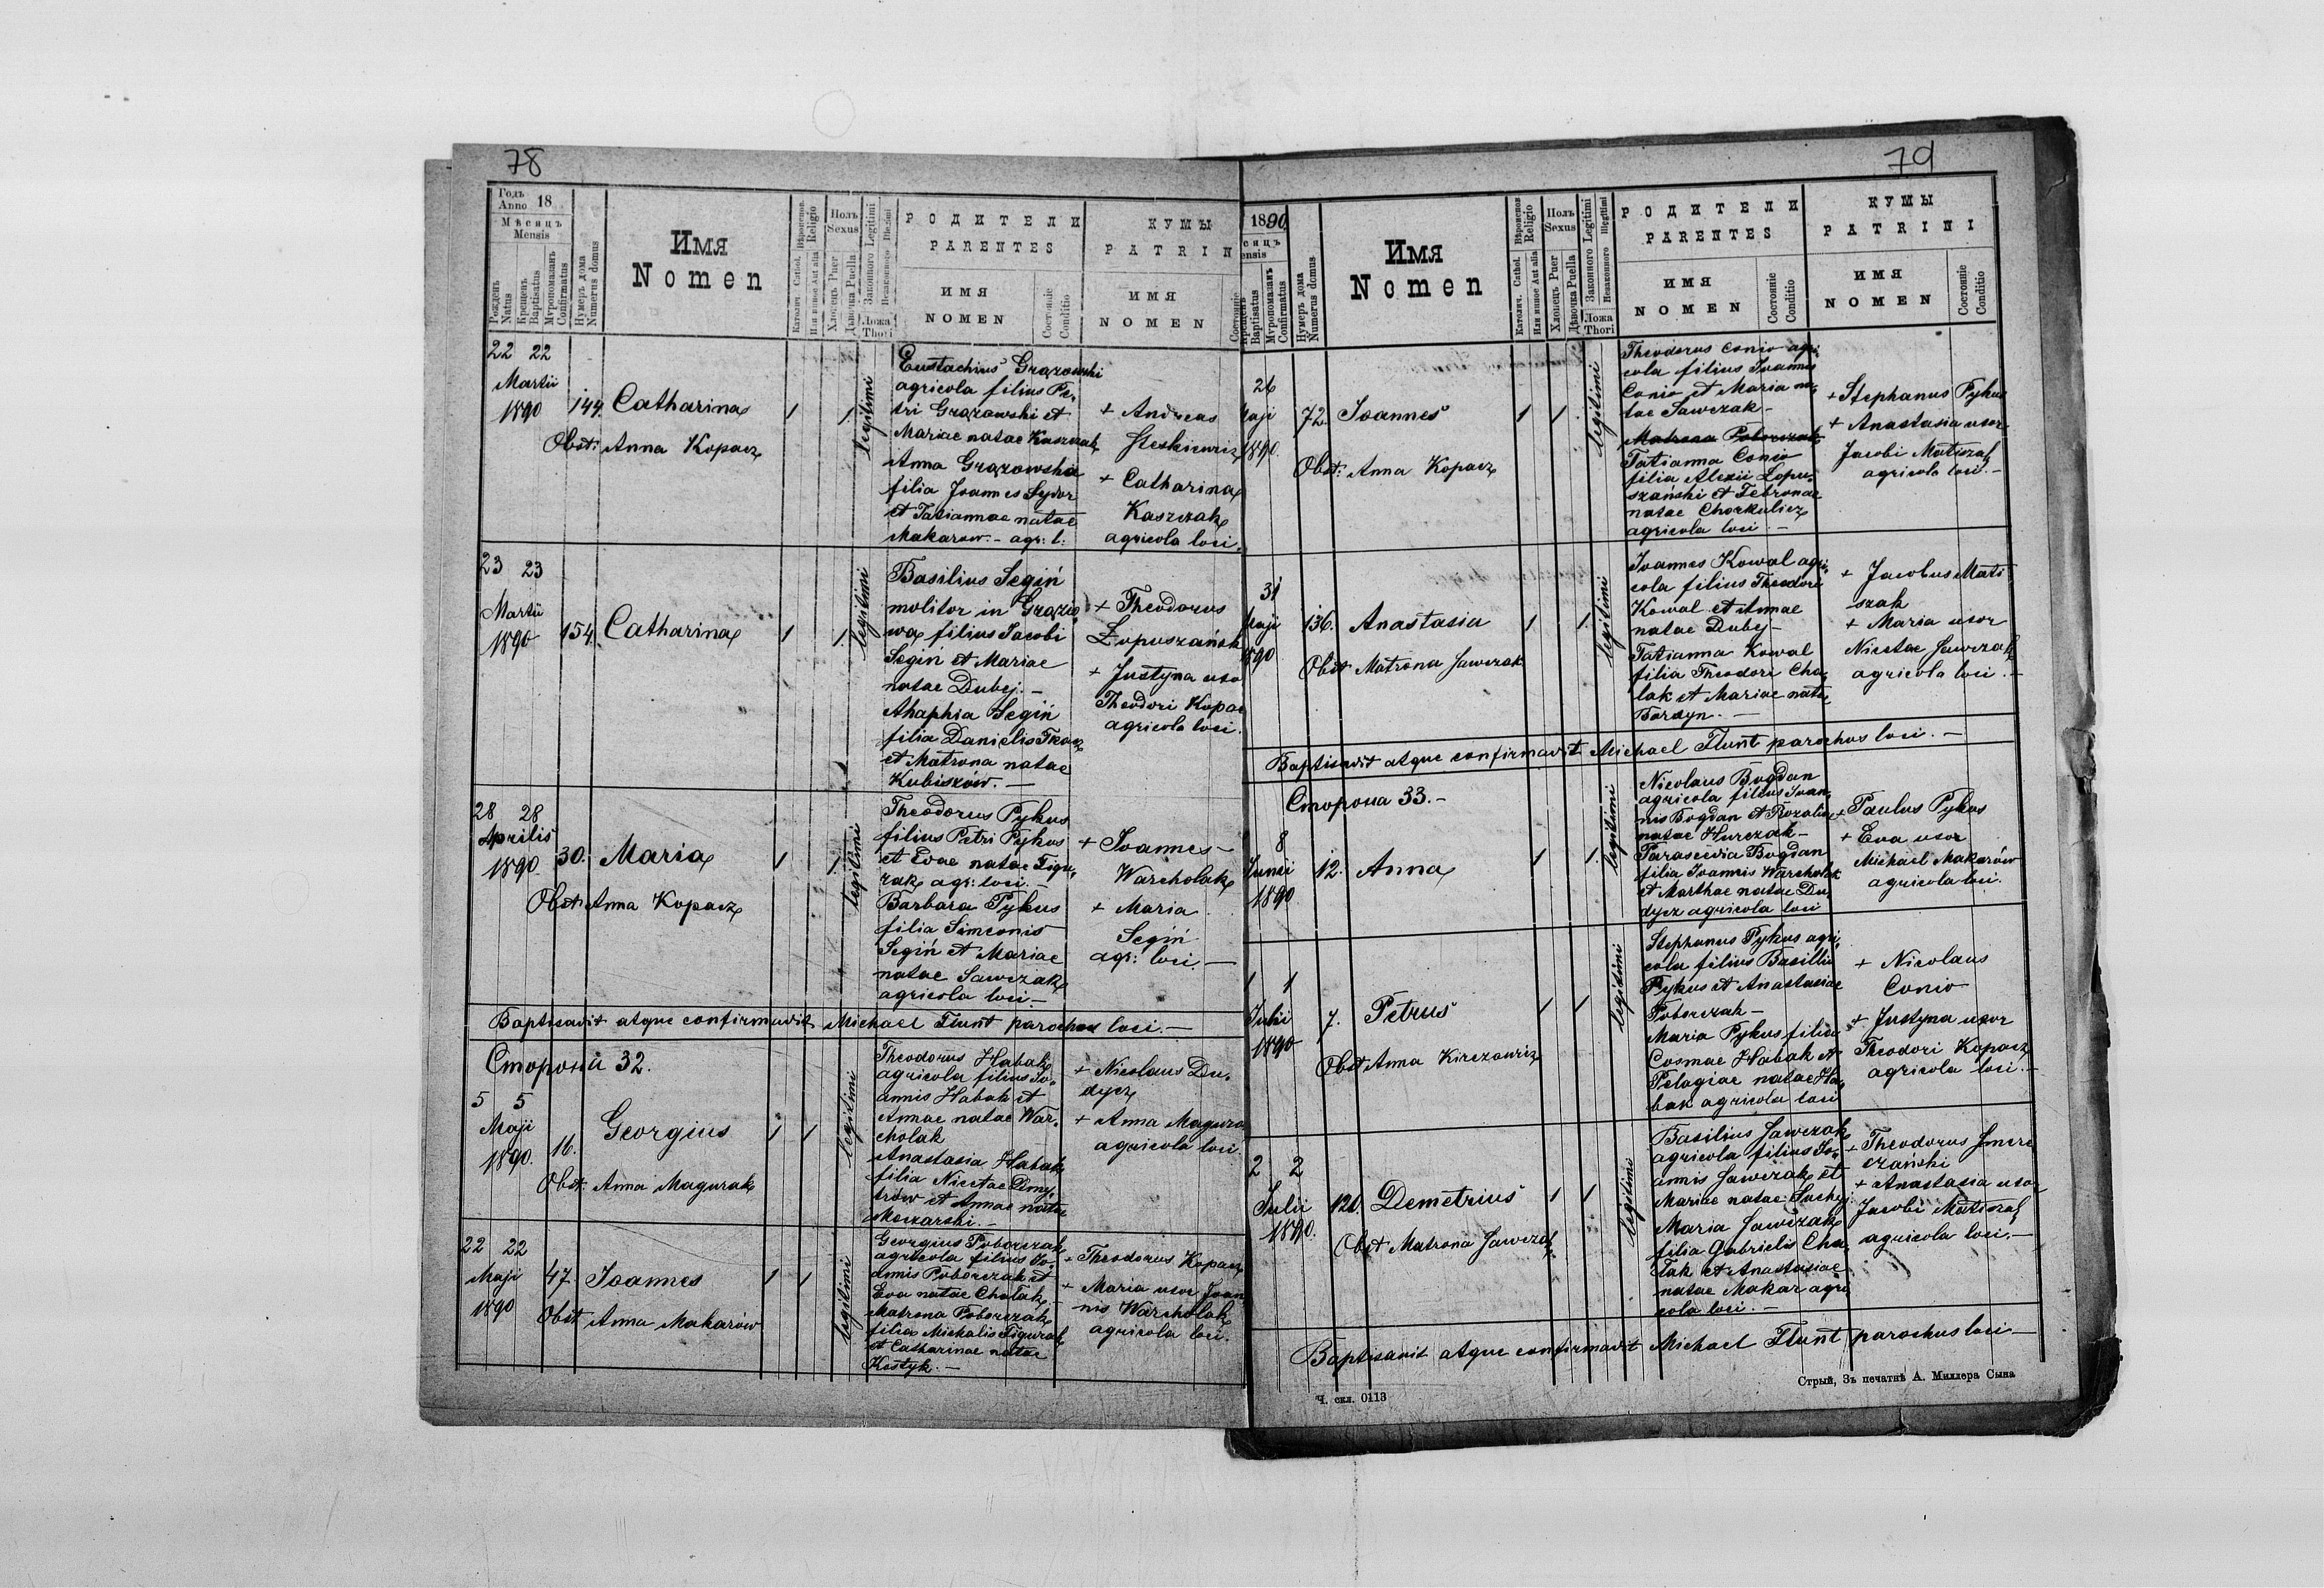 78
Годъ
Anno 18
Мѣсяцъ
Mensis
Рожденъ
Natus
Крещенъ
Baptisatus
Мѵропомазанъ
Confirmatus
Нумеръ дома
Numerus domus
Имя
Nomen
Вѣроиспов.
Religio
Католич. Cathol.
Или инное Aut alia
Полъ
Sexus
Хлопецъ Puer
Дѣвочка Puella
Законного Legitimi
Незаконного Illegitimi
Ложа
Thori
РОДИТЕЛИ
PARENTES
ИМЯ
NOMEN
Состояніе
Conditio
КУМЫ
PATRIN
ИМЯ
NOMEN
Состояніе
22 22
Martii
1890
144.
Catharina
Obst: Anna Kopacz
1
1.
legitimi
Eustachius Grązowski
agricola filius Pe-
tri Grązowski et
Mariae natae Kaszczak
Anna Grązowska
filia Joannes Sydor
et Tatiannae natae
Makarow.- agr: l:
+ Andreas
Steskiewicz
+ Catharina
Kaszczak
agricola loci.
23 23
Martii
1890
154.
Catharina
1
1.
legitimi
Basilius Segiń
molitor in Grązio
wa filius Jacobi
Segiń et Mariae
natae Dubej.-
Ahaphia Segiń
filia Danielis Tkacz
et Matrona natae
Kubiszów.-
+ Theodorus
Łopuszańsk
+ Justyna uxo
Theodori Kopac
agricola loci.
28 28
Aprilis
1890.
30.
Maria
Obst: Anna Kopacz
1
1.
legitimi
Theodorus Pykus
filius Petri Pykus
et Evae natae Figu-
rak agr: loci.-
Barbara Pykus
filia Simeonis
Segiń et Mariae
natae Sawczak
agricola loci.-
+ Joannes-
Warcholak
+ Maria
Segiń
agr: loci.-
Baptisavit atque confirmavit Michael Flunt parochus loci.-
Сторона 32.
5 5
Maji
1890.
16.
Georgius
Obst: Anna Magurak
1
1
legitimi
Theodorus Habak
agricola filius Jo-
annis Habak et
Annae natae War-
cholak
Anastasia Habak
filia Nicetae Dmy-
trów et Annae natae
Moczarski.-
+ Nicolaus Du-
dycz
+ Anna Magura
agricola loci
22 22
Maji
1890
47.
Joannes
Obst: Anna Makarów
1
1
legitimi
Georgius Poborczak
agricola filius Jo-
annis Poborczak et
Eva natae Chalak.-
Matrona Poborczak
filia Michalis Figurak
et Catharinae natae
Kostyk.-
+ Theodorus Kopacz
+ Maria uxor Joan
nis Warcholak
agricola loci.
79
1890.
сяцъ
ensis
Крещенъ
Baptisatus
Мѵропомазанъ
Confirmatus
Нумеръ дома
Numerus domus
Имя
Nomen
Вѣроиспов.
Religio
Католич. Cathol.
Или инное Aut alia
Полъ
Sexus
Хлопецъ Puer
Дѣвочка Puella
Законного Legitimi
Незаконного Illegitimi
Ложа
Thori
РОДИТЕЛИ
PARENTES
ИМЯ
NOMEN
Состояніе
Conditio
КУМЫ
PATRINI
ИМЯ
NOMEN
Состояніе
Conditio
26
Maji
1890.
72.
Joannes
Obst: Anna Kopacz
1
1.
legitimi
Theodorus Conio agri
cola filius Joannes
Conio et Maria na-
tae Sawczak-
Matrona Poborczak
Tatianna Conio
filia Alexii Lopu-
szański et Febronae
natae Chorkulicz
agricola loci.-
+ Stephanus Pykus
+ Anastasia uxor
Jacobi Matiszak
agricola loci.-
31
Maji
1890
136.
Anastasia
Obst: Matrona Jawczak
1
1.
legitimi
Joannes Kowal agri-
cola filius Theodori
Kowal et Annae
natae Dubej-
Tatianna Kowal
filia Theodori Cha-
lak et Mariae natae
Bardyn.-
+ Jacobus Mati
szak
+ Maria uxor
Nicetae Jawczak
agricola loci.-
Baptisavit atque confirmavit Michael Flunt parochus loci.-
Сторона 33.-
8
Junii
1890
12.
Anna
1
1.
legitimi
Nicolaus Bogdan
agricola filius Joan-
nis Bogdan et Rozaliae
natae Hurczak-
Parascevia Bogdan
filia Joannis Warcholak
et Marthae natae Du-
dycz agricola loci
+ Paulus Pykus
+ Eva uxor
Michael Makarów
agricola loci.
1 1
Julii
1890
7.
Petrus
Obst: Anna Kirczowicz
1
1
legitimi
Stephanus Pykus agri-
cola filius Basilii
Pykus et Anastasiae
Poborczak-
Maria Pykus filia
Cosmae Habak et
Pelagiae natae Ha-
bak agricola loci
+ Nicolaus
Conio
+ Justyna uxor
Theodori Kopacz
agricola loci.-
2 2
Julii
1890.
120.
Demetrius
Obst: Matrona Jawczak
1
1
legitimi
Basilius Jawczak
agricola filius Jo-
annis Jawczak et
Mariae natae Suchyj
Maria Jawczak
filia Gabrielis Cha-
lak et Anastasiae
natae Makar agri
cola loci.-
+ Theodorus Smere
czański
+ Anastasia uxor
Jacobi Matiszak
agricola loci.-
Baptisavit atque confirmavit Michael Flunt parochus loci-
Ч. скл. 0113
Стрый, Зъ печатнѣ А. Миллера Сына